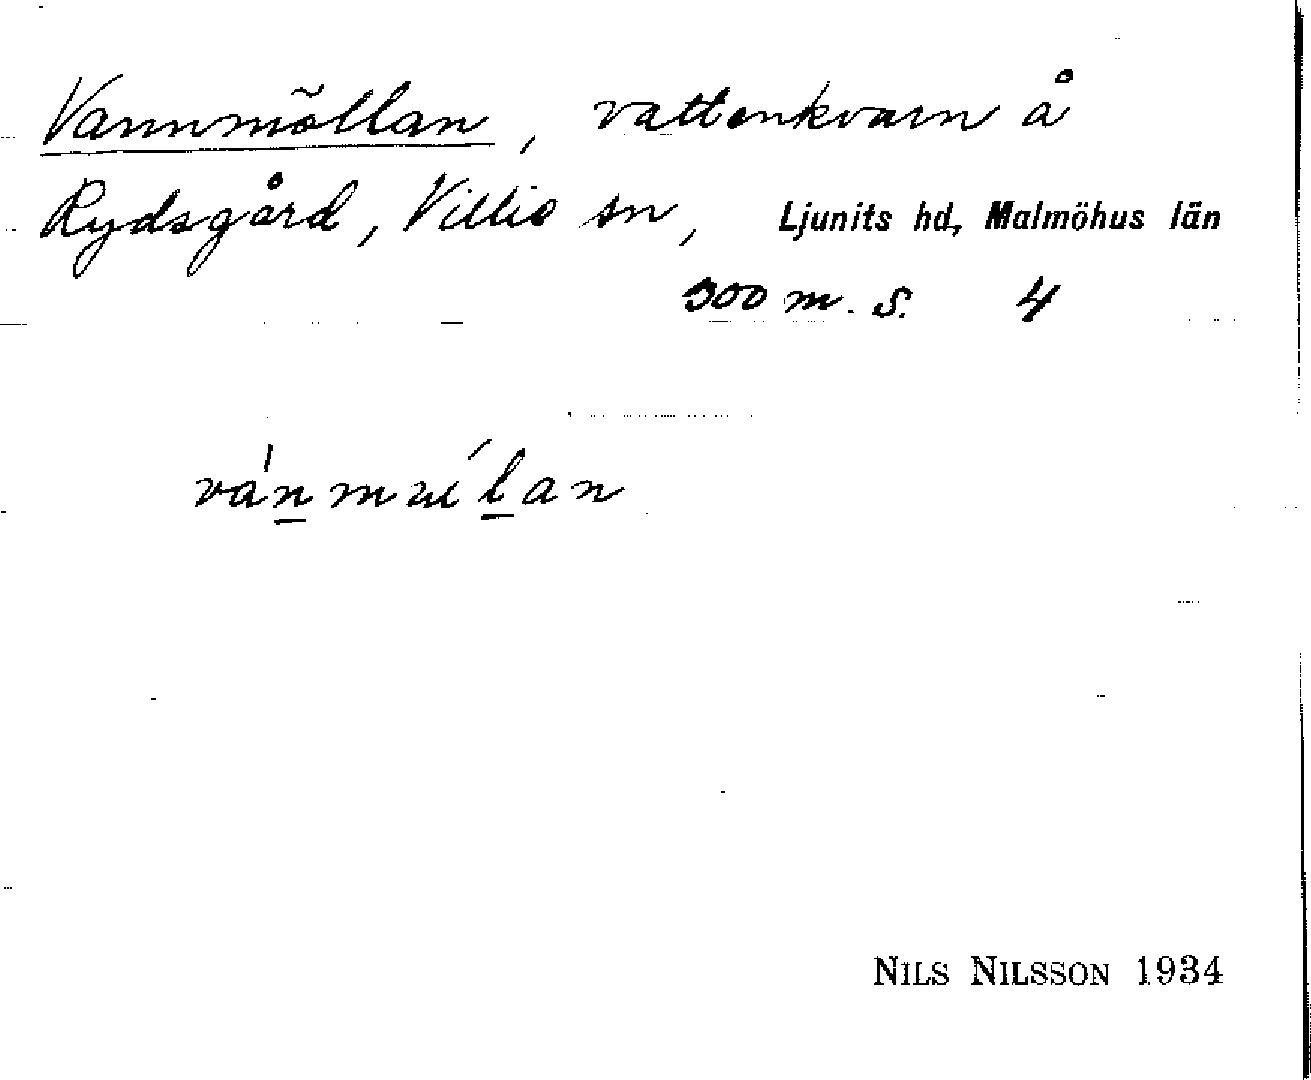 Vannmöllan, vattenkvarn å
Rydsgård, Villie sn, Ljunits hd, Malmöhus län
300 m. S. 4
NILS NILSSON 1934